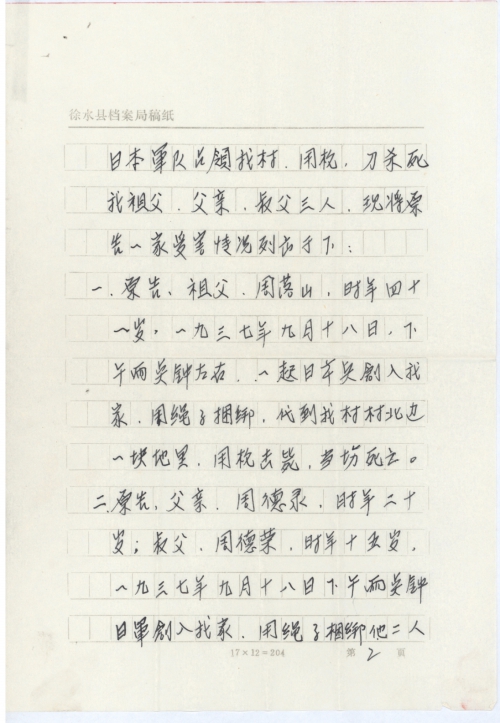 徐水县档案局稿紙
日本軍队占領我村.用枪,刀杀死
我祖父.父亲.叔父三人.现将原
告一家受害情况列古于下:
一.原告、祖父.周落山,时年四十
一岁。一九三七年九月十八日,下
午两点钟左右.一起日本兵創入我
家.用绳子捆绑.代到我村村北边
一块地里.用枪击毙,当场死亡。
二.原告,父亲.周德录,时年二十
岁;叔父.周德荣,时年十五岁,
一九三七年九月十八日下午两点钟
日軍創入我家.用绳子捆绑他二人
17×12=204 第 2 頁